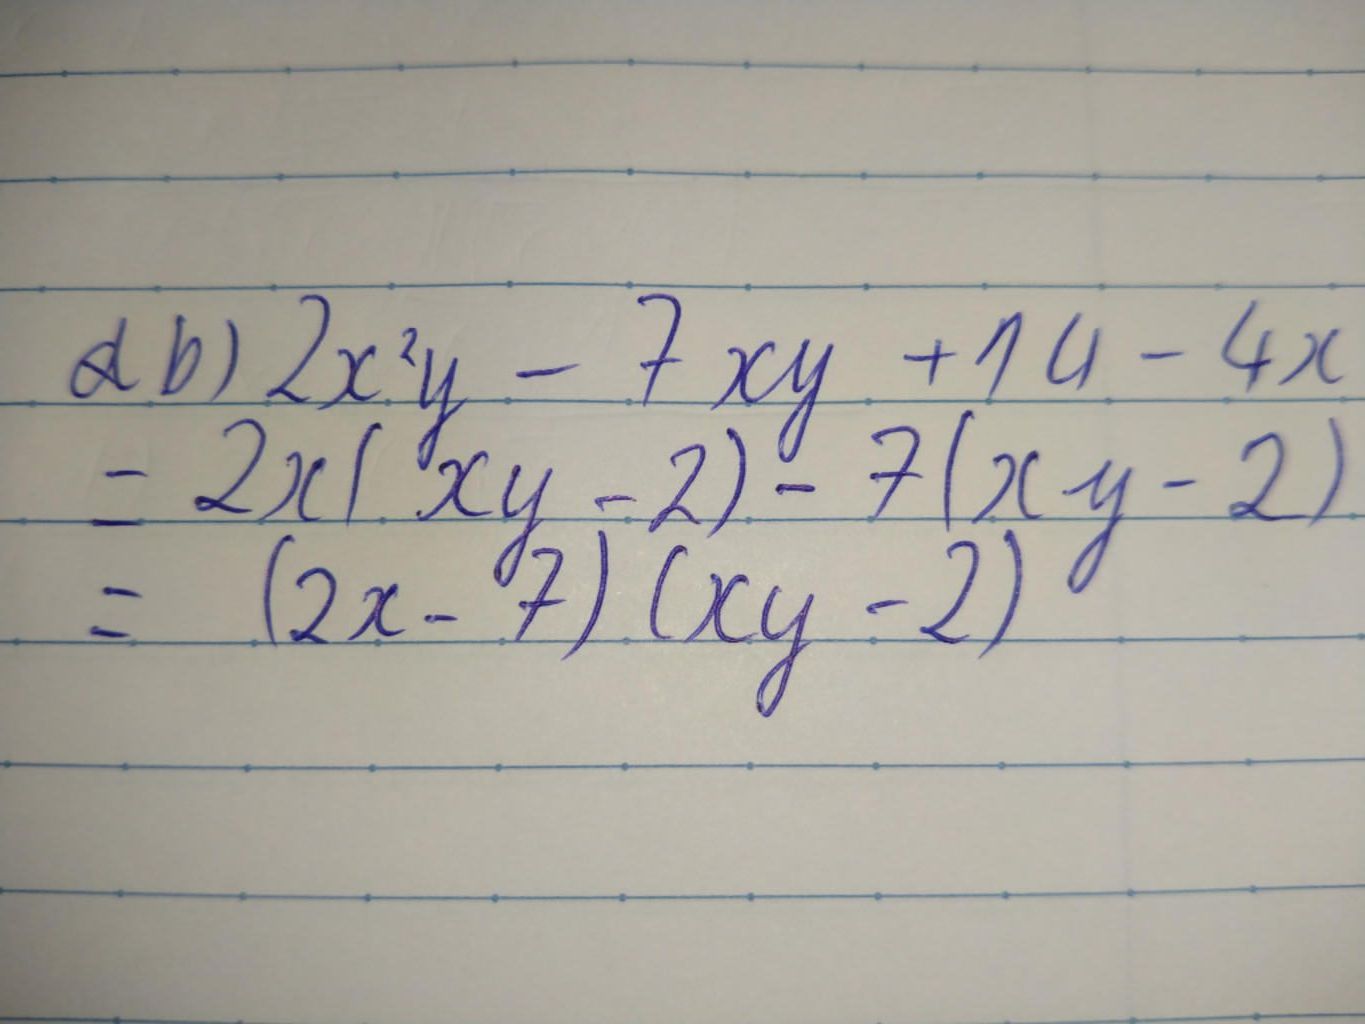 b) 2x²y - 7xy + 14 - 4x
= 2x(xy - 2) - 7(xy - 2)
= (2x - 7)(xy - 2)